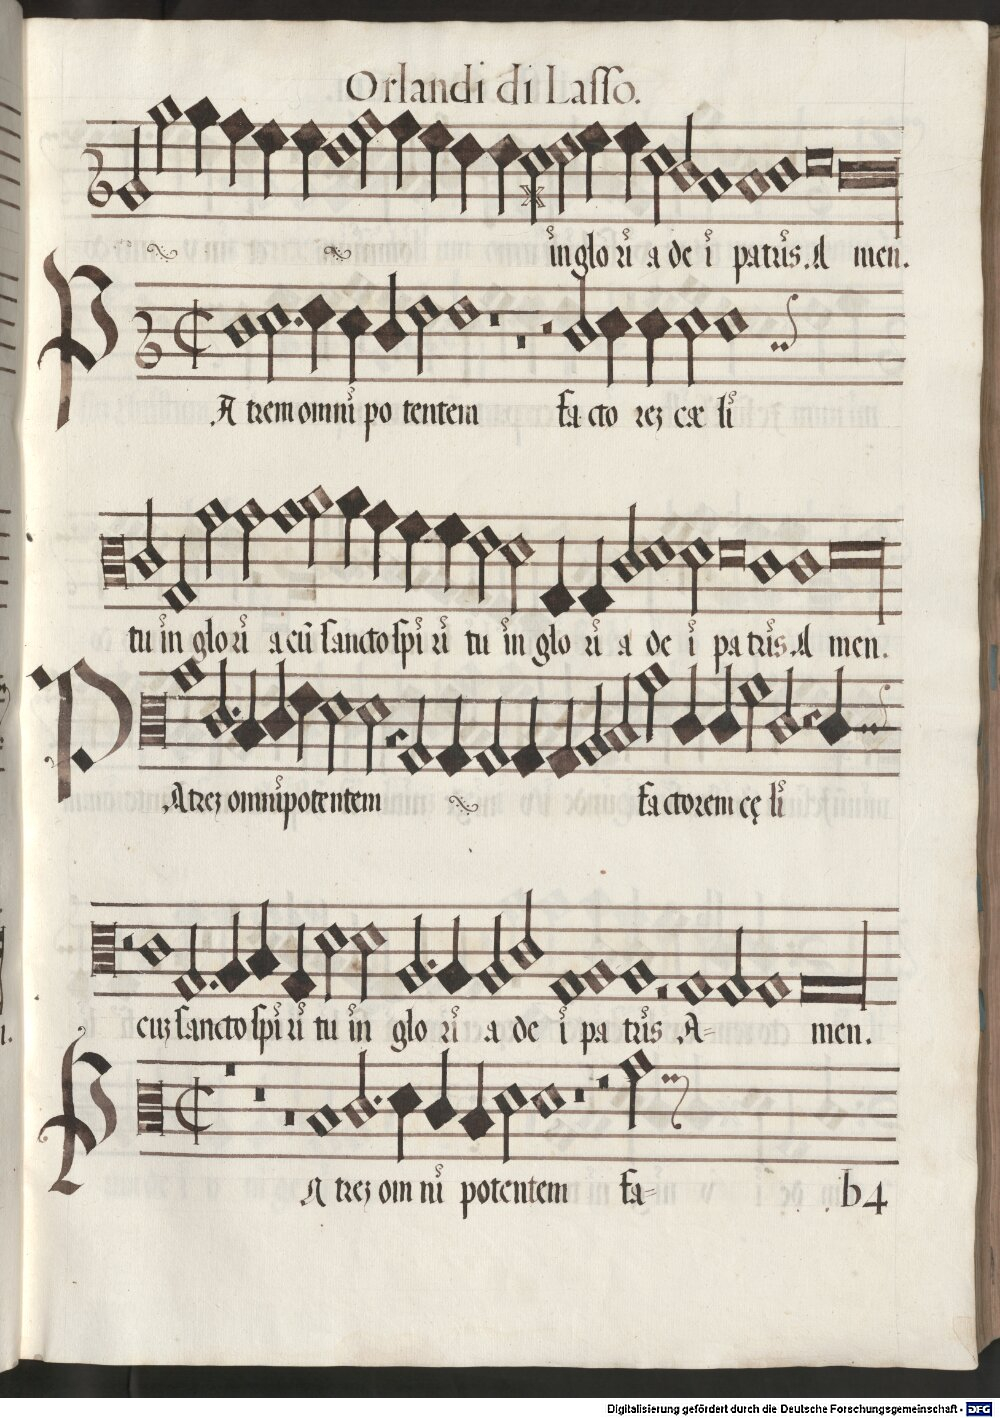 Orlandi di Lasso.
in glo ri a de i patris. A men.
P
A trem omni po tentem Fa cto rez cæ li
tu in glo ri a cū sancto spi ri tu in glo ri a de i pa tris. A men.
P
A trez omnipotentem Fa ctorem cę li
cuz sancto spi ri tu in glo ri a de i pa tris A= men.
P
A trez om ni potentem Fa= b4
Digitalisierung gefördert durch die Deutsche Forschungsgemeinschaft - DFG